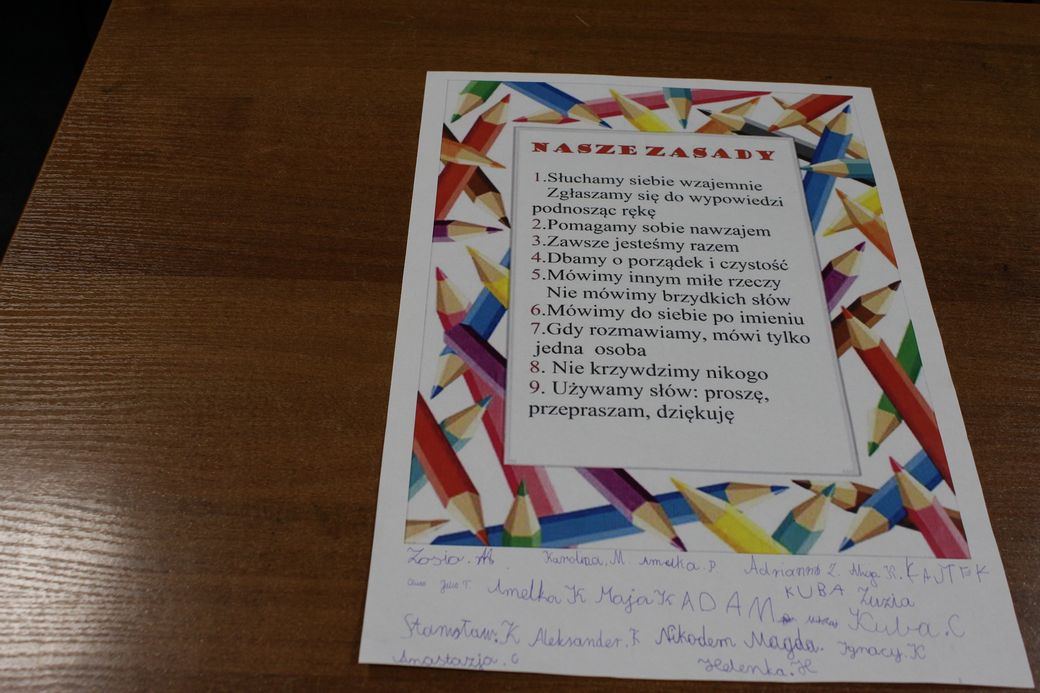 NASZE ZASADY
1.Słuchamy siebie wzajemnie
Zgłaszamy się do wypowiedzi
podnosząc rękę
2.Pomagamy sobie nawzajem
3.Zawsze jesteśmy razem
4.Dbamy o porządek i czystość
5.Mówimy innym miłe rzeczy
Nie mówimy brzydkich słów
6.Mówimy do siebie po imieniu
7.Gdy rozmawiamy, mówi tylko
jedna osoba
8. Nie krzywdzimy nikogo
9. Używamy słów: proszę,
przepraszam, dziękuję
Zosia. Karolina, M. Amelka. P Adrianna Z. K. KAJTEK
Julia T. Amelka K Maja K ADAM KUBA Zuzia
Stanisław. K Aleksander. K Nikodem Magda. Kuba. C
Anastazja. C Helenka. H Ignacy. K